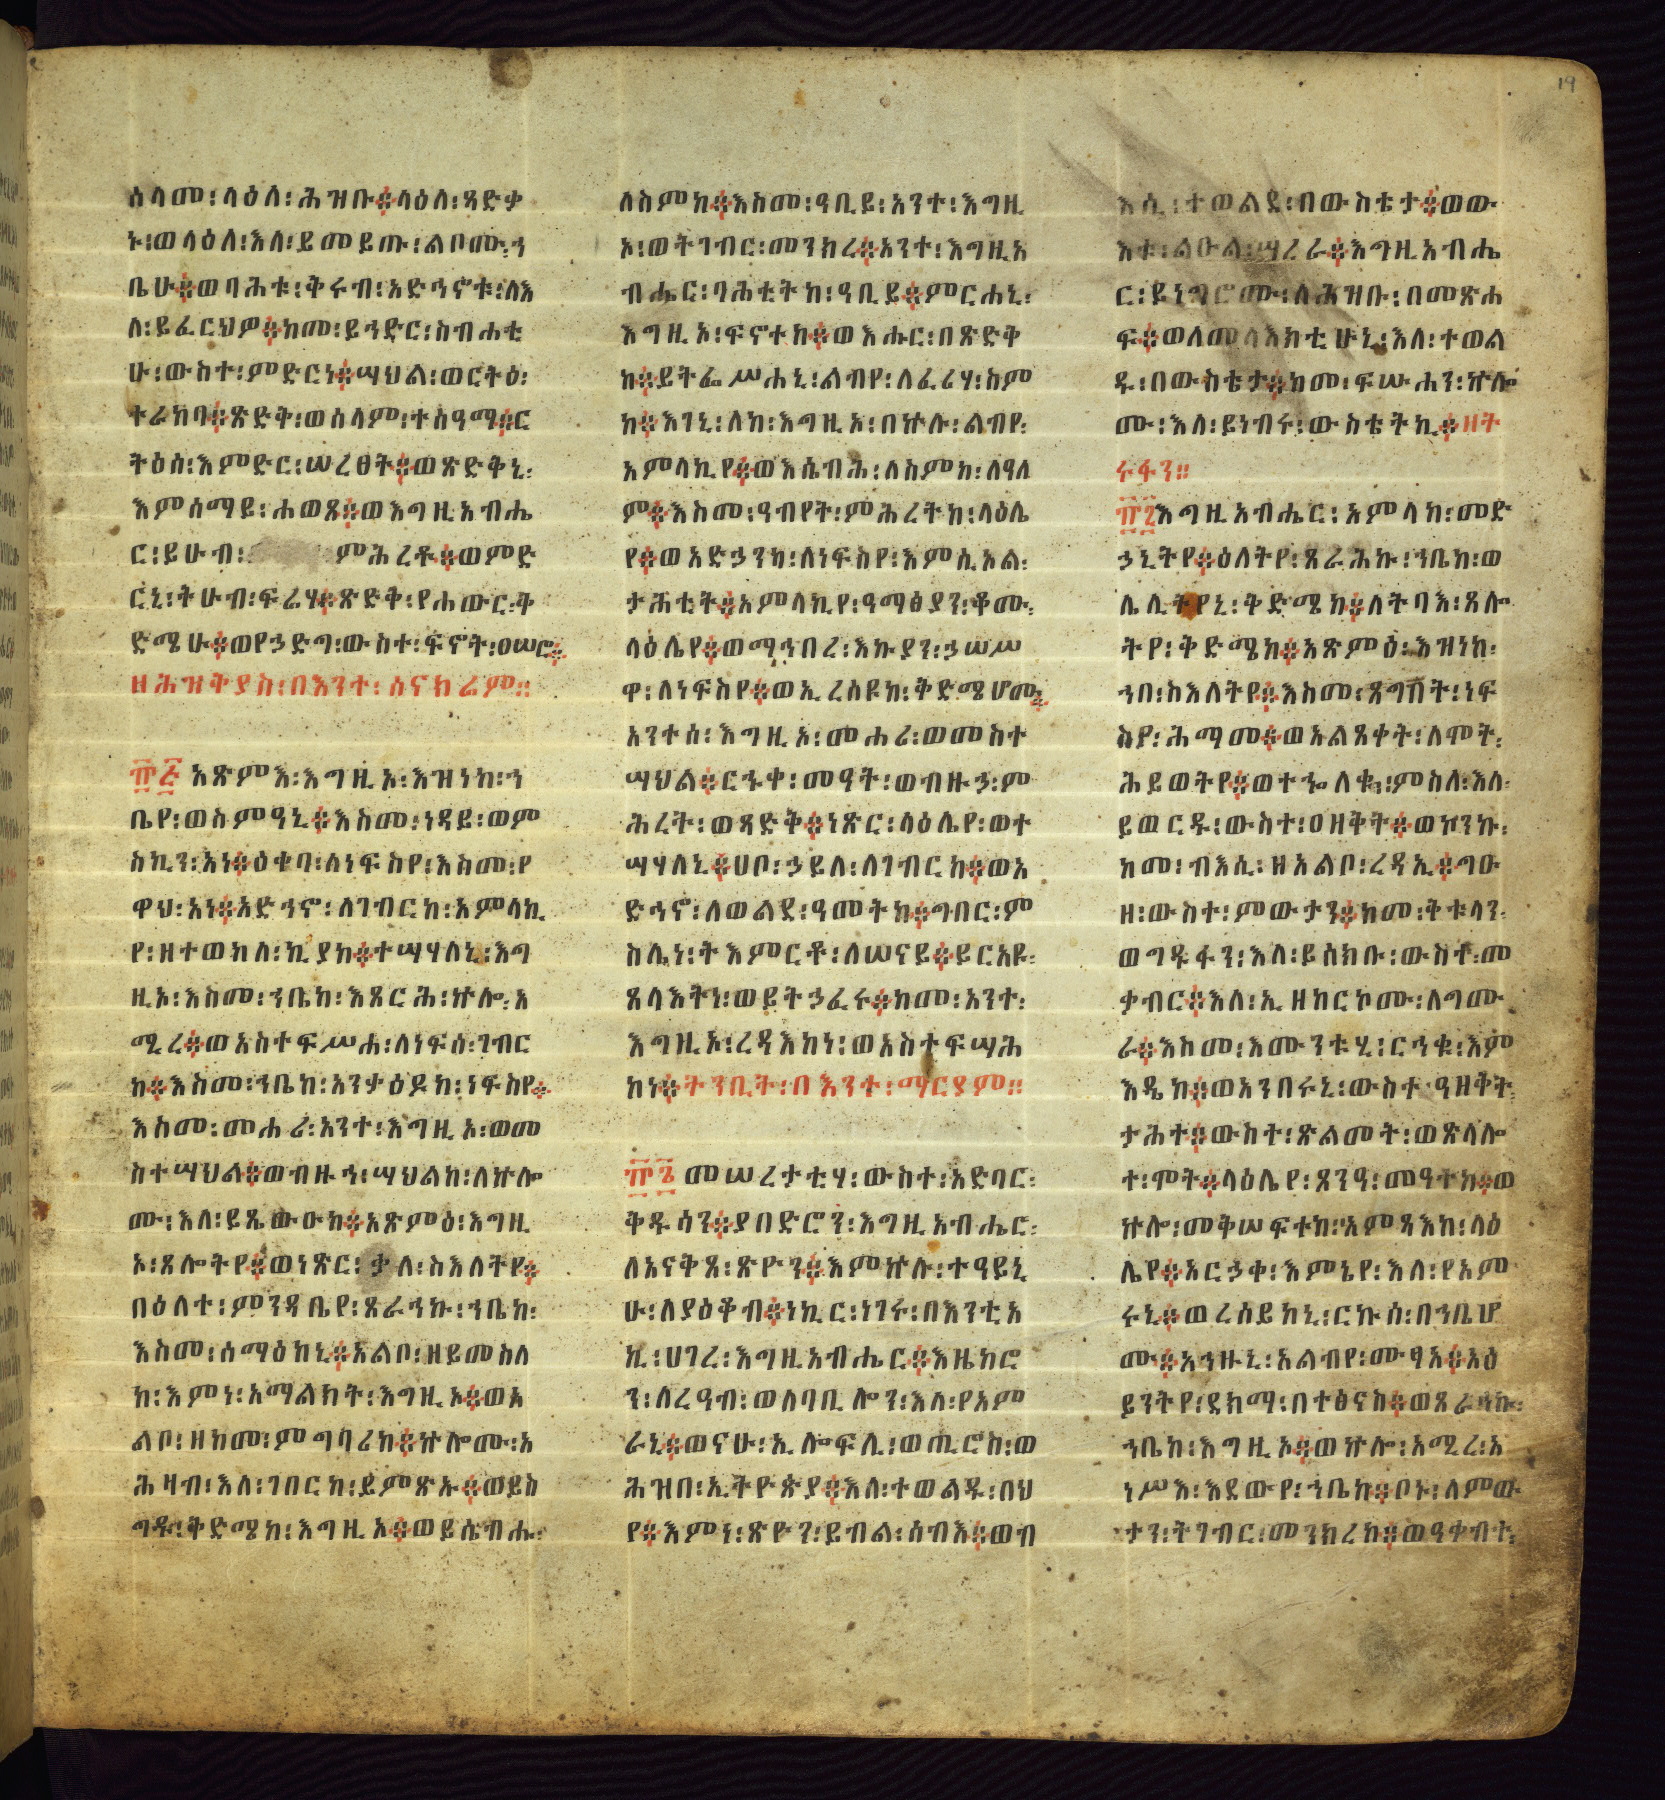 19
ሰላመ፡ላዕለ፡ሕዝቡ፨ላዕለ፡ጻድቃ
ኑ፡ወላዕለ፡እለ፡ይመይጡ፡ልቦሙ፡ኀ
ቤሁ፨ወባሕቱ፡ቅሩብ፡አድኅኖቱ፡ለእ
ለ፡ይፈርህዎ፨ከመ፡ይኅድር፡ስብሐቲ
ሁ፡ውስተ፡ምድርነ፨ሣህል፡ወርትዕ፡
ተራከባ፨ጽድቅ፡ወሰላም፡ተሰዓማ፨ር
ትዕሰ፡እምድር፡ሠረፀት፨ወጽድቅኒ፡
እምሰማይ፡ሐወጸ፨ወእግዚአብሔ
ር፡ይሁብ፡ ምሕረቶ፨ወምድ
ርኒ፡ትሁብ፡ፍሬሃ፨ጽድቅ፡የሐውር፡ቅ
ድሜሁ፨ወየኃድግ፡ውስተ፡ፍኖት፡ዐሠሮ፨
ዘሕዝቅያስ፡በእንተ፡ሰናክሬም፡፡
፹፭ አጽምእ፡እግዚኦ፡እዝነከ፡ኀ
ቤየ፡ወስምዓኒ፨እስመ፡ነዳይ፡ወም
ስኪን፡አነ፨ዕቀባ፡ለነፍስየ፡እስመ፡የ
ዋህ፡አነ፨አድኅኖ፡ለገብርከ፡አምላኪ
የ፡ዘተወከለ፡ኪያከ፨ተሣሃለኒ፡እግ
ዚኦ፡እስመ፡ኀቤከ፡እጸርሕ፡ኵሎ፡አ
ሚረ፨ወአስተፍሥሐ፡ለነፍሰ፡ገብር
ከ፨እስመ፡ኀቤከ፡አንታዕዶከ፡ነፍስየ፨
እስመ፡መሐሪ፡አንተ፡እግዚኦ፡ወመ
ስተሣህል፨ወብዙኅ፡ሣህልከ፡ለኵሎ
ሙ፡እለ፡ይጼውዑከ፨አጽምዕ፡እግዚ
ኦ፡ጸሎትየ፨ወነጽር፡ቃለ፡ስእለትየ፨
በዕለተ፡ምንዳቤየ፡ጸራኅኩ፡ኀቤከ፡
እስመ፡ሰማዕከኒ፨አልቦ፡ዘይመስለ
ከ፡እምነ፡አማልክት፡እግዚኦ፨ወአ
ልቦ፡ዘከመ፡ምግባሪከ፨ኵሎሙ፡አ
ሕዛብ፡እለ፡ገበርከ፡ይምጽኡ፨ወይስ
ግዱ፡ቅድሜከ፡እግዚኦ፨ወይሴብሑ፡
ለስምከ፨እስመ፡ዓቢይ፡አንተ፡እግዚ
ኦ፡ወትገብር፡መንክረ፨አንተ፡እግዚአ
ብሔር፡ባሕቲትከ፡ዓቢይ፨ምርሐኒ፡
እግዚኦ፡ፍኖተከ፨ወእሑር፡በጽድቅ
ከ፨ይትፌሥሐኒ፡ልብየ፡ለፈሪሃ፡ስም
ከ፨እገኒ፡ለከ፡እግዚኦ፡በኵሉ፡ልብየ፡
አምላኪየ፨ወእሴብሕ፡ለስምከ፡ለዓለ
ም፨እስመ፡ዓብየት፡ምሕረትከ፡ላዕሌ
የ፨ወአድኃንካ፡ለነፍስየ፡እምሲኦል፡
ታሕቲት፨አምላኪየ፡ዓማፅያን፡ቆሙ፡
ላዕሌየ፨ወማኅበረ፡እኩያን፡ኃሠሥ
ዋ፡ለነፍስየ፨ወኢረሰዩከ፡ቅድሜሆሙ፨
አንተሰ፡እግዚኦ፡መሐሪ፡ወመስተ
ሣህል፨ርኁቀ፡መዓት፡ወብዙኃ፡ም
ሕረት፡ወጻድቅ፨ነጽር፡ላዕሌየ፡ወተ
ሣሃለኒ፨ሀቦ፡ኃይለ፡ለገብርከ፨ወአ
ድኅኖ፡ለወልደ፡ዓመትከ፨ግበር፡ም
ስሌነ፡ትእምርቶ፡ለሠናይ፨ይርአዩ፡
ጸላእትነ፡ወይትኃፈሩ፨ከመ፡አንተ፡
እግዚኦ፡ረዳእከነ፡ወአስተፍሣሕ
ከነ፨ትንቢት፡በእንተ፡ማርያም፡፡
፹፮ መሠረታቲሃ፡ውስተ፡አድባር፡
ቅዱሳን፨ያበድሮን፡እግዚአብሔር፡
ለአናቅጸ፡ጽዮን፨እምኵሉ፡ተዓይኒ
ሁ፡ለያዕቆብ፨ነኪር፡ነገሩ፡በእንቲአ
ኪ፡ሀገረ፡እግዚአብሔር፨እዜከሮ
ን፡ለረዓብ፡ወለባቢሎን፡እለ፡የአም
ራኒ፨ወናሁ፡ኢሎፍሊ፡ወጢሮስ፡ወ
ሕዝበ፡ኢትዮጵያ፨እለ፡ተወልዱ፡በህ
የ፨እምነ፡ጽዮን፡ይብል፡ሰብእ፨ወብ
እሲ፡ተወልደ፡በውስቴታ፨ወው
እቱ፡ልዑል፡ሣረራ፨እግዚአብሔ
ር፡ይነግሮሙ፡ለሕዝቡ፡በመጽሐ
ፍ፨ወለመላእክቲሁኒ፡እለ፡ተወል
ዱ፡በውስቴታ፨ከመ፡ፍሡሓን፡ኵሎ
ሙ፡እለ፡ይነብሩ፡ውስቴትኪ፨ዘት
ሩፋን፡፡
፹፯እግዚአብሔር፡አምላከ፡መድ
ኃኒትየ፨ዕለትየ፡ጸራሕኩ፡ኀቤከ፡ወ
ሌሊትየኒ፡ቅድሜከ፨ለትባእ፡ጸሎ
ትየ፡ቅድሜከ፨አጽምዕ፡እዝነከ፡
ኀበ፡ስእለትየ፨እስመ፡ጸግበት፡ነፍ
ስየ፡ሕማመ፨ወአልጸቀት፡ለሞት፡
ሕይወትየ፨ወተኈለቁ፡ምስለ፡እለ፡
ይወርዱ፡ውስተ፡ዐዘቅት፨ወኮንኩ፡
ከመ፡ብእሲ፡ዘአልቦ፡ረዳኢ፨ግዑ
ዘ፡ውስተ፡ምውታን፨ከመ፡ቅቱላን፡
ወግዱፋን፡እለ፡ይሰክቡ፡ውስተ፡መ
ቃብር፨እለ፡ኢዘከርኮሙ፡ለግሙ
ራ፨እስመ፡እሙንቱሂ፡ርኅቁ፡እም
እዴከ፨ወአንበሩኒ፡ውስተ፡ዓዘቅት፡
ታሕተ፨ውስተ፡ጽልመት፡ወጽላሎ
ተ፡ሞት፨ላዕሌየ፡ጸንዓ፡መዓትከ፨ወ
ኵሎ፡መቅሠፍተከ፡አምጻእከ፡ላዕ
ሌየ፨አርኃቀ፡እምኔየ፡እለ፡የአም
ሩኒ፨ወረሰይከኒ፡ርኩሰ፡በኀቤሆ
ሙ፨አኀዙኒ፡አልብየ፡ሙፃአ፨አዕ
ይንትየ፡ደክማ፡በተፅናስ፨ወጸራኅኩ፡
ኀቤከ፡እግዚኦ፨ወኵሎ፡አሚረ፡አ
ነሥእ፡እደውየ፡ኀቤከ፨ቦኑ፡ለምው
ታን፡ትገብር፡መንክረከ፨ወዓቀብተ፡